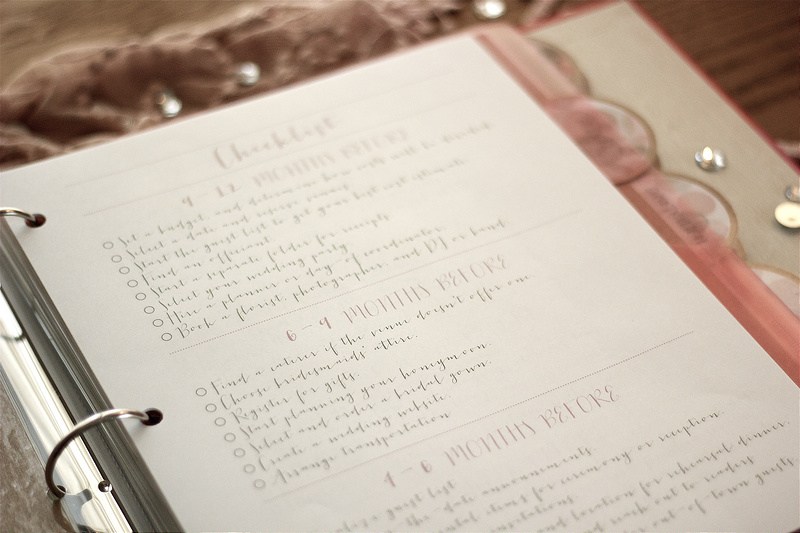 Checklist
9 - 12 MONTHS BEFORE
Set a budget and determine how costs will be divided
Select a date and reserve venues
Start the guest list to get your best cost estimate
Find an officiant.
Start a separate folder for receipts
Select your wedding party.
Hire a planner or day-of coordinator.
Book a florist, photographer, and DJ or band.
6 - 9 MONTHS BEFORE
Find a caterer if the venue doesn't offer one
Choose bridesmaids' attire.
Register for gifts.
Start planning your honeymoon.
Select and order a bridal gown.
Create a wedding website.
Arrange transportation
4 - 6 MONTHS BEFORE
a guest list
the-date announcements
rental items for ceremony or reception.
invitations
and location for rehearsal dinner
and reach out to readers
for out-of-town guests.